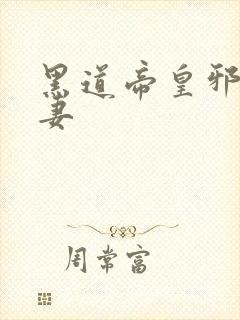 黑道帝皇邪
妻
周常富